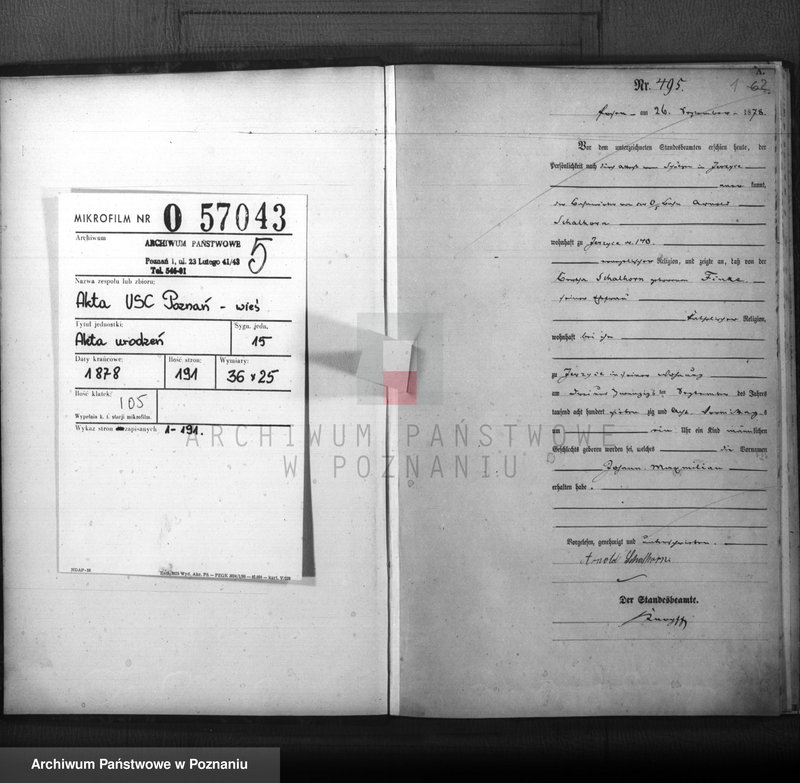 MIKROFILM NR 0 57043
Archiwum
ARCHIWUM PAŃSTWOWE
Poznań 1, ul. 23 Lutego 41/43
Tel. 546-01
5
Nazwa zespołu lub zbioru:
Akta USC Poznań - wieś
Tytuł jednostki:
Akta urodzeń
Sygn. jedn.
15
Daty krańcowe:
1878
Ilość stron:
191
Wymiary:
36 x 25
Ilość klatek:
105
Wypełnia k. f. stacji mikrofilm.
Wykaz stron zapisanych 1-191.
ARCHIWUM PAŃSTWOWE
W POZNANIU
A.
Nr. 495.
1 62
Posen am 26. September 1878.
Vor dem unterzeichneten Standesbeamten erschien heute, der
Persönlichkeit nach durch in Jerzyce
kannt,
der Arnold
Schalhorn
wohnhaft zu Jerzyce n. 140.
evangelischer Religion, und zeigte an, daß von der
Schalhorn geborenen Finke
seiner Ehefrau
katholischer Religion,
wohnhaft bei ihm
zu Jerzyce in seiner Wohnung
am drei und zwanzigsten September des Jahres
tausend acht hundert siebenzig und acht Vormittags
um ein Uhr ein Kind männlichen
Geschlechts geboren worden sei, welches die Vornamen
Johann Maxmilian
erhalten habe.
Vorgelesen, genehmigt und unterschrieben.
Arnold Schalhorn
Der Standesbeamte.
Archiwum Państwowe w Poznaniu